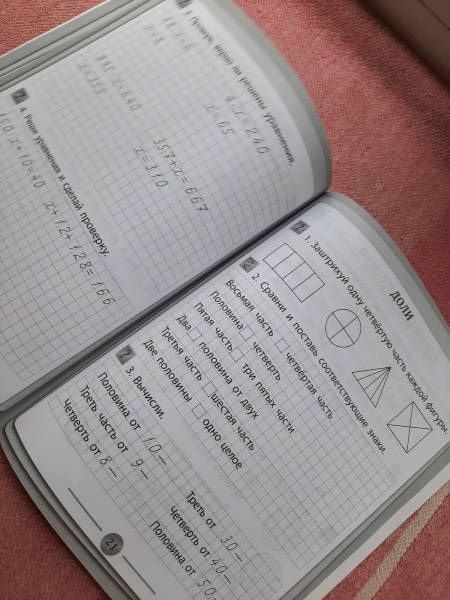 Проверь, верно ли решены уравнения.
4 · x = 240
x = 65
x = 640
x = 355
357 + x = 667
x = 310
4. Реши уравнения и сделай проверку.
x + 12 + 128 = 166
ДОЛИ
1. Заштрихуй одну четвёртую часть каждой фигуры.
2. Сравни и поставь соответствующие знаки.
Восьмая часть четвёртая часть
Половина четверть
Пятая часть три пятых части
Два половина от двух
Третья часть шестая часть
Две половины одно целое
3. Вычисли.
Половина от 10 =
Треть часть от 9 =
Четверть от 8 =
Треть от 30 =
Четверть от 40 =
Половина от 50 =
21